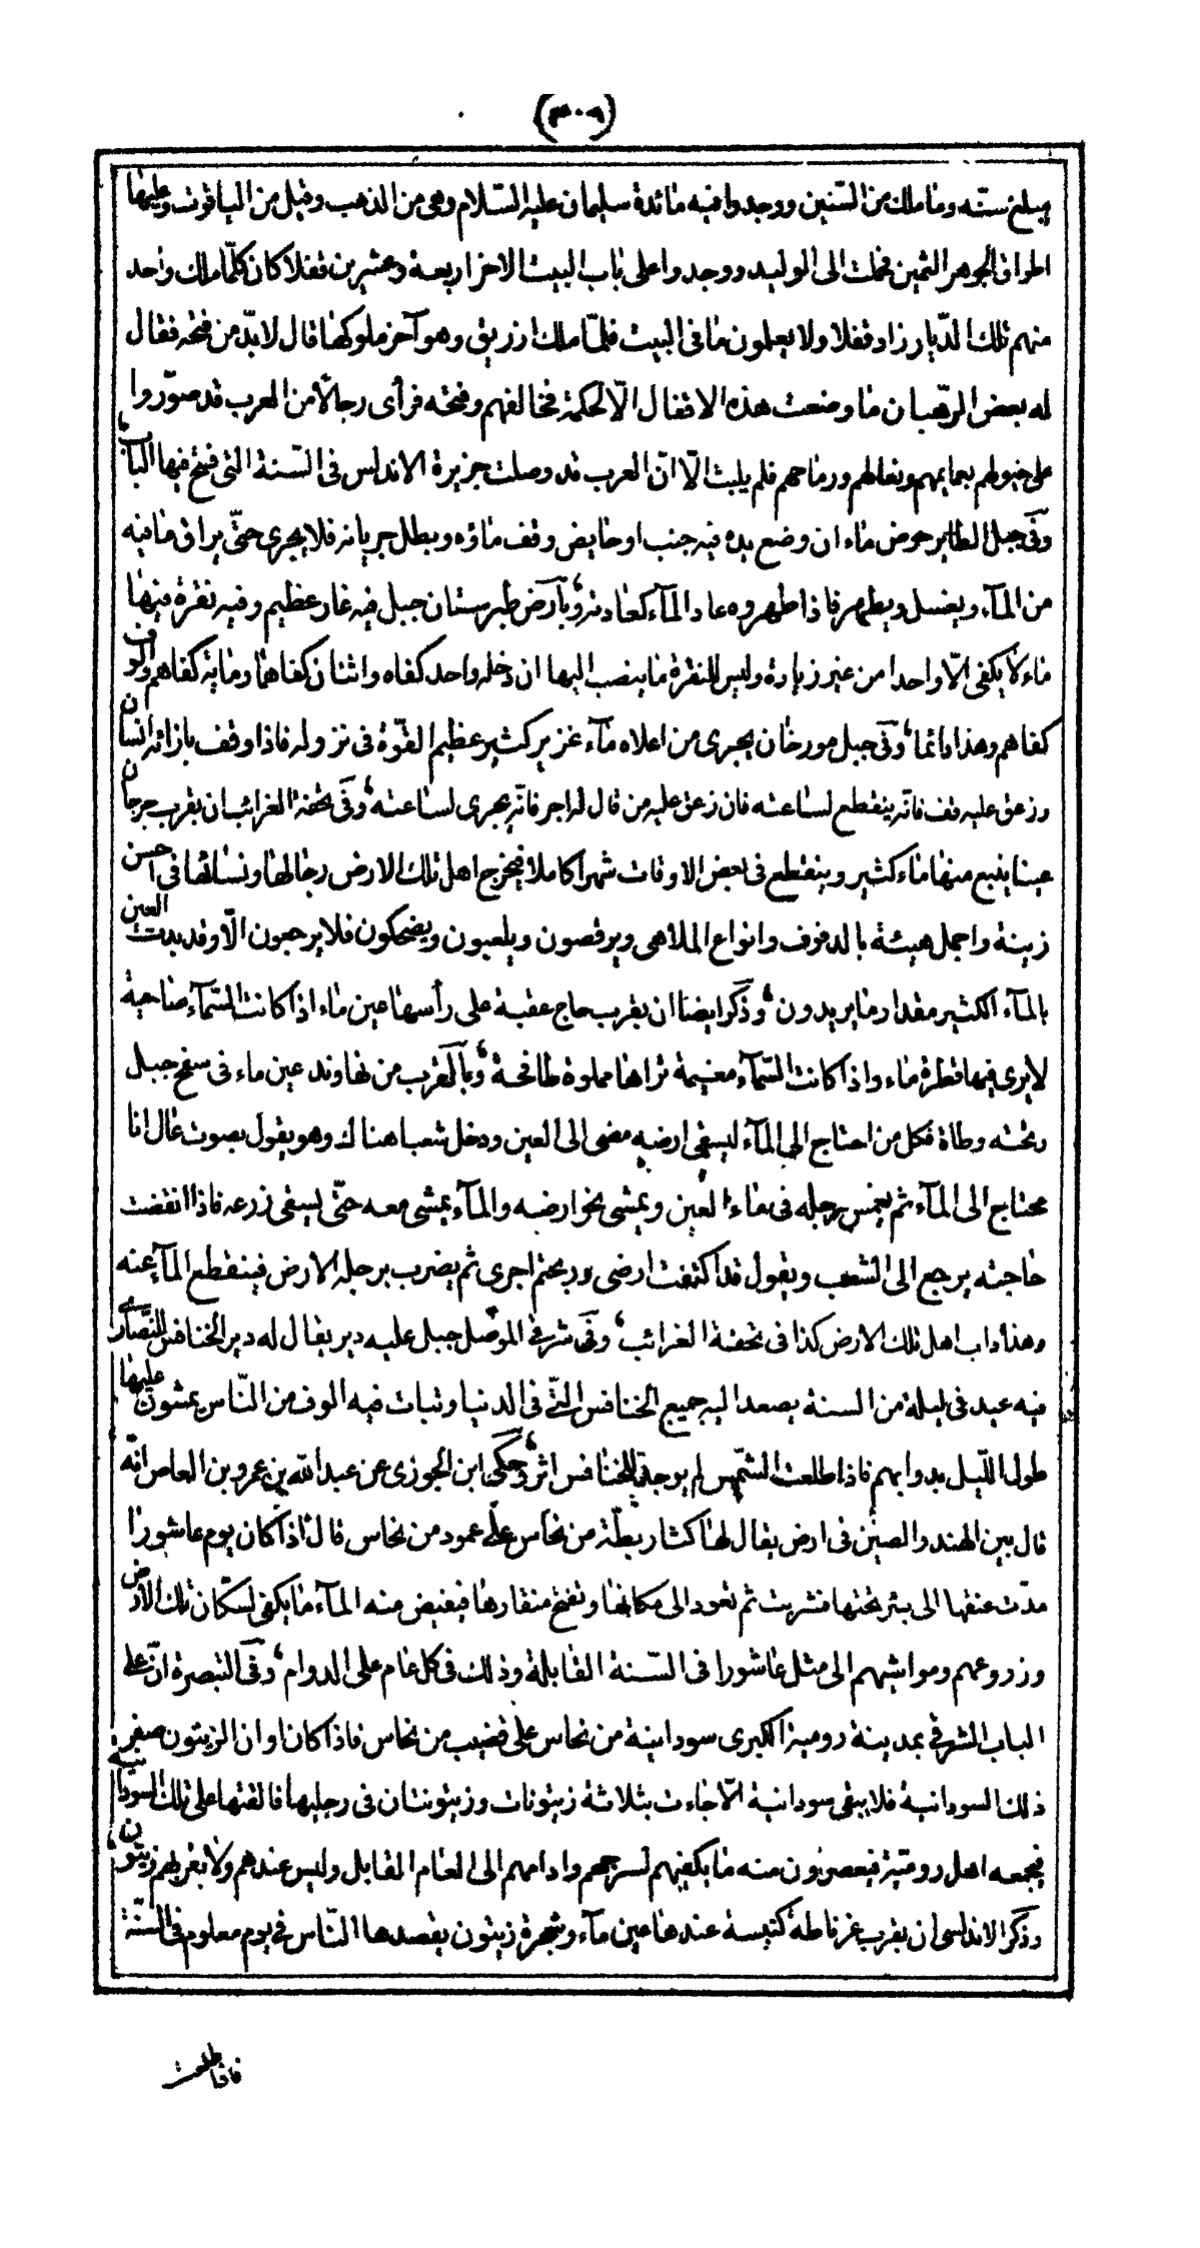 (٣٠٩)
مبلغ سنته وما ملك من السّنين ووجدوا فيه مائدة سليمان عليه السّلام وهى من الذهب وقيل من الياقوت وعليها
اطواق الجوهر الثمين فحملت الى الوليد ووجدوا على باب البيت الاخر اربعة وعشرين قفلا كان كلّما ملك واحد
منهم تلك الدّيار زاد قفلا ولا يعلمون ما فى البيت فلمّا ملك ارزيق وهو آخر ملوكها قال لابدّ من فتحه فقال
له بعض الرّهبان ما وضعت هذه الاقفال الّا لحكمة فخالفهم وفتحه فرأى رجالا من العرب قد صوّروا
على خيولهم بعمايمهم ونعالهم ورماحهم فلم يلبث الّا انّ العرب قد وصلت جزيرة الاندلس فى السّنة التى فتح فيها الباب
وفى جبل الطاير حوض ماء ان وضع يده فيه جنب او حايض وقف ماؤه وبطل جريانه فلا يجرى حتّى يراق ما فيه
من المآء ويغسل ويطهر فاذا طهروه عاد المآء كعادته وبارض طبرستان جبل فيه غار عظيم وفيه نقرة فيها
ماء لا يكفى الّا واحدا من غير زيادة وليس للنقرة ما ينصب اليها ان دخله واحد كفاه واثنان كفاهما وماية كفاهم والوف
كفاهم وهذا دائما وفى جبل مورخان يجرى من اعلاه مآء غزير كثير عظيم القوّة فى نزوله فاذا وقف بازائه انسان
وزعق عليه وقف فانّه ينقطع لساعته فان زعق عليه من قال له اجر فانّه يجرى لساعته وفى تحفة الغرائب ان بقرب جرجان
عينا ينبع منها ماء كثير وينقطع فى بعض الاوقات شهرا كاملا فيخرج اهل تلك الارض رجالها ونسائها فى احسن
زينة واجمل هيئة بالدفوف وانواع الملاهى ويرقصون ويلعبون ويضحكون فلا يرجعون الّا وقد بدت العين
بالمآء الكثير مقدار ما يريدون وذكر ايضا ان بقرب حاج عقبة على رأسها عين ماء اذا كانت السّمآء صاحية
لا يرى فيها قطرة ماء واذا كانت السّمآء مغيمة تراها مملوة طافحة وبالقرب من نهاوند عين ماء فى سفح جبل
وتحته وطاة فكل من احتاج الى المآء ليسقى ارضه مضى الى العين ودخل شعبا هناك وهو يقول بصوت عال انا
محتاج الى المآء ثم يغمس رجله فى ماء العين ويمشى نحو ارضه والمآء يمشى معه حتّى يسقى زرعه فاذا انقضت
حاجته يرجع الى الشعب ويقول قد اكتفت ارضى وربحتم اجرى ثم يضرب برجله الارض فينقطع المآء عنه
وهذا داب اهل تلك الارض كذا فى تحفة الغرائب وفى شرقى الموصل جبل عليه دير يقال له دير الخنافس للنصّارى
فيه عيد فى ليلة من السنة يصعد اليه جميع الخنافس الّتى فى الدنيا وتبات فيه الوف من النّاس يمشون عليها
طول اللّيل بدوابهم فاذا طلعت الشّمس لم يوجد للخنافس اثر وحكى ابن الجوزى عن عبد الله بن عمرو بن العاص انّه
قال بين الهند والصين فى ارض يقال لها كثار بطّة من نحاس على عمود من نحاس قال اذا كان يوم عاشورا
مدّت عنقها الى بئر تحتها فشربت ثم تعود الى مكانها وتفتح منقارها فيفيض منه المآء ما يكفى لسكّان تلك الارض
وزروعهم ومواشيهم الى مثل عاشورا فى السّنة القابلة وذلك فى كل عام على الدوام وفى التبصرة انّ على
الباب الشرقى بمدينة رومية الكبرى سودانية من نحاس على قضيب من نحاس فاذا كان اوان الزيتون صفر
ذلك السودانية فلا يبقى سودانية الّا جاءت بثلاثة زيتونات وزيتونتان فى رجليها فالقتها على تلك السودانية
فيجمعه اهل روميّة فيعصرون منه ما يكفيهم لسرجهم وادامهم الى العام القابل وليس عندهم ولا بقربهم زيتون
وذكر الاندلسى ان بقرب غرناطة كنيسة عندها عين مآء وشجرة زيتون يقصدها النّاس فى يوم معلوم فى السّنة